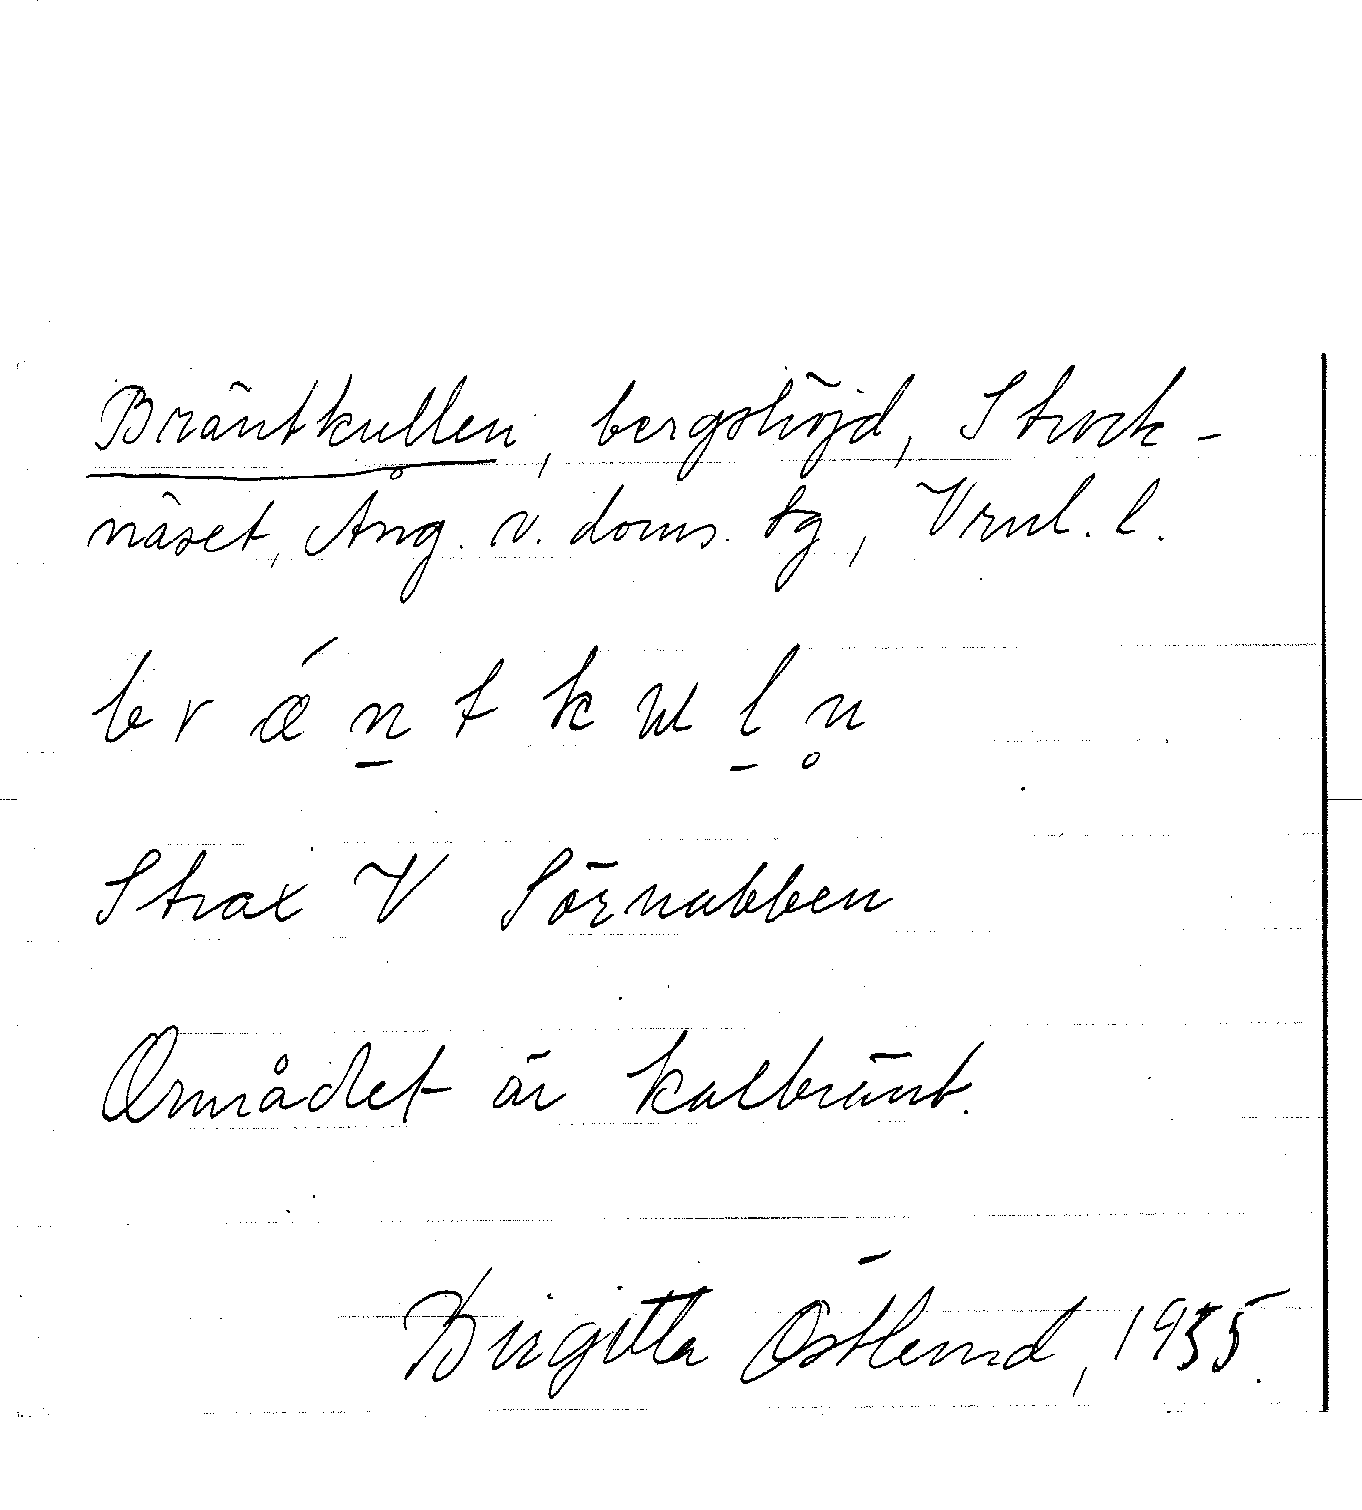 Bräntkullen, bergshöjd, Strock-
näset, Ång. v. doms. tg, Vrml. l.
br ǽ n̲ t k ɯ l̲ n̥
Strax V Sörnabben
Området är kalbränt.
Birgitta Östlund, 1935.